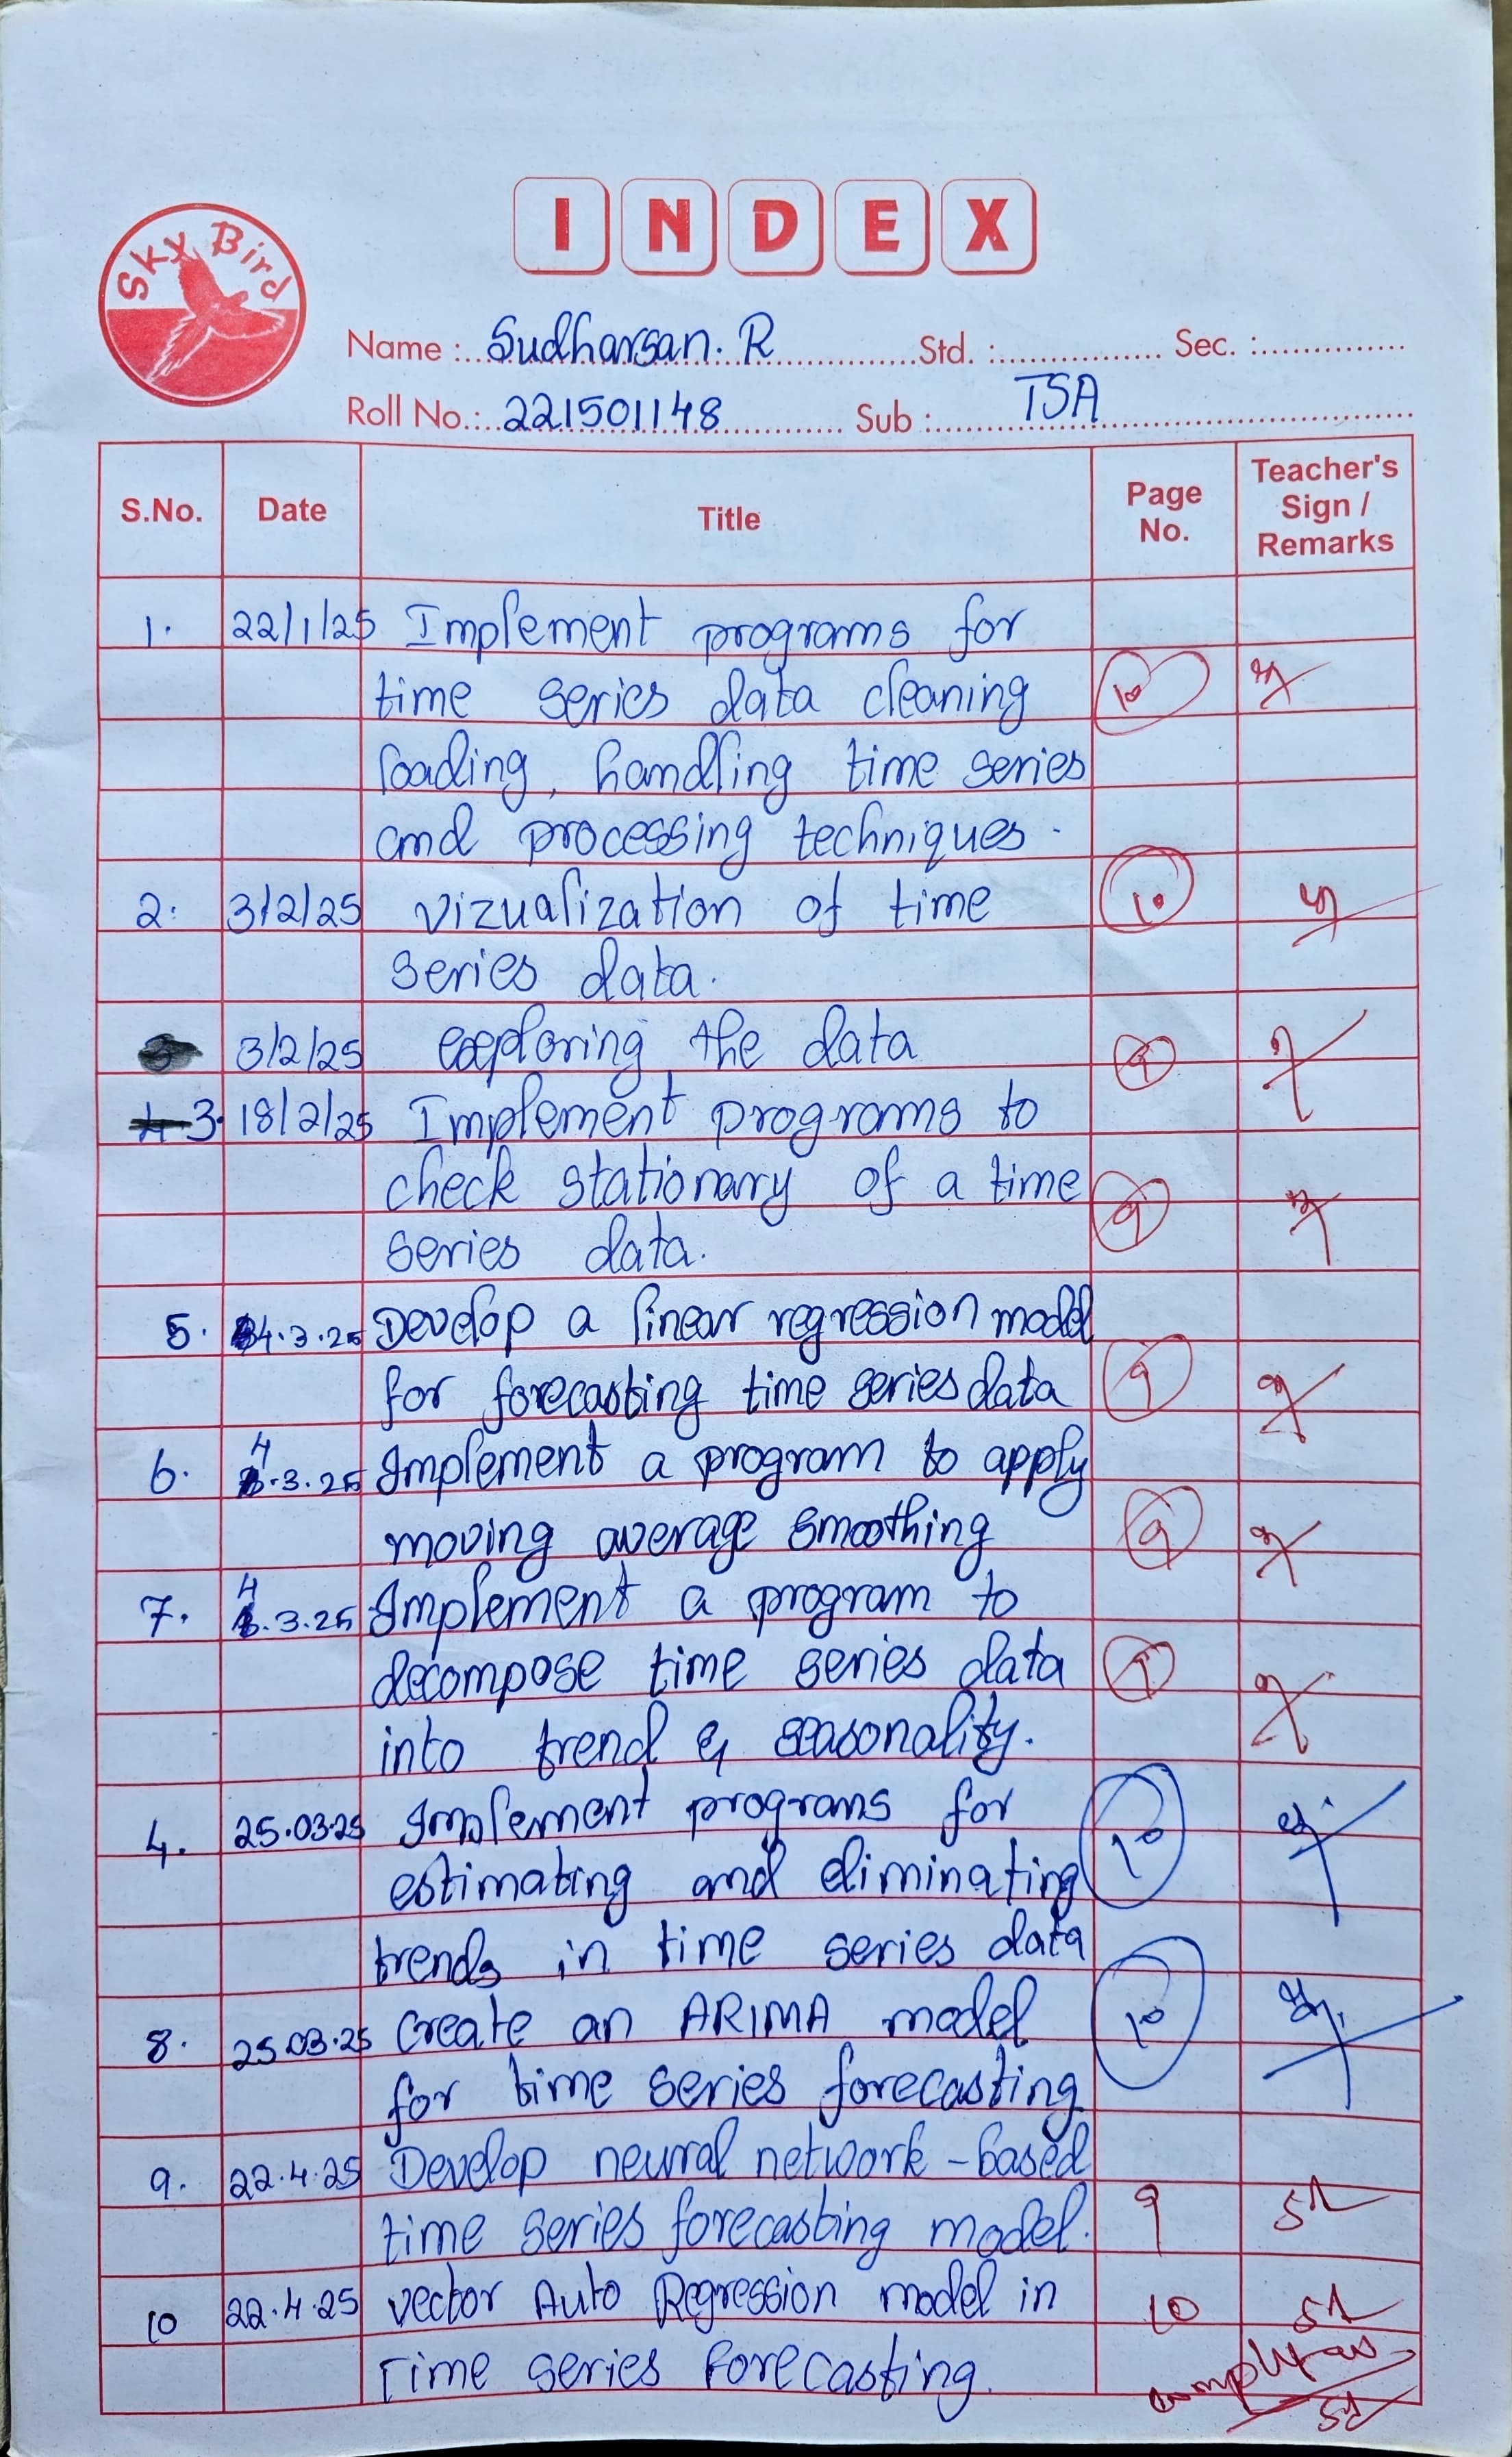 Sky Bird
INDEX
Name : Sudharsan. R Std. : Sec. :
Roll No.: 221501148 Sub : TSA
S.No. Date Title Page No. Teacher's Sign / Remarks
1. 22/1/25 Implement programs for
time series data cleaning 10
loading, handling time series
and processing techniques.
2. 3/2/25 vizualization of time 10
series data.
3/2/25 exploring the data 9
3. 18/2/25 Implement programs to
check stationary of a time 9
series data.
5. 4.3.25 Develop a linear regression model
for forecasting time series data 9
6. 4.3.25 Implement a program to apply
moving average smoothing 9
7. 4.3.25 Implement a program to
decompose time series data 9
into trend & seasonality.
4. 25.03.25 Implement programs for 10
estimating and eliminating
trends in time series data
8. 25.03.25 Create an ARIMA model 10
for time series forecasting
9. 22.4.25 Develop neural network-based
time series forecasting model. 9
10 22.4.25 vector Auto Regression model in 10
Time series Forecasting.